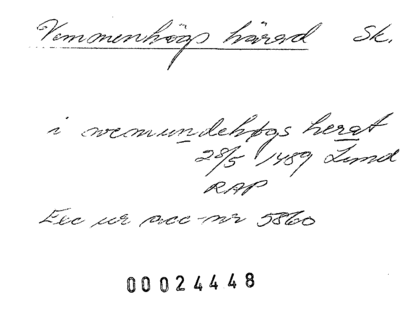 Vemmenhögs härad Sk.
i wemundehøgs herat
28/5 1489 Lund
RAP
Exc ur acc-nr 5860
00024448